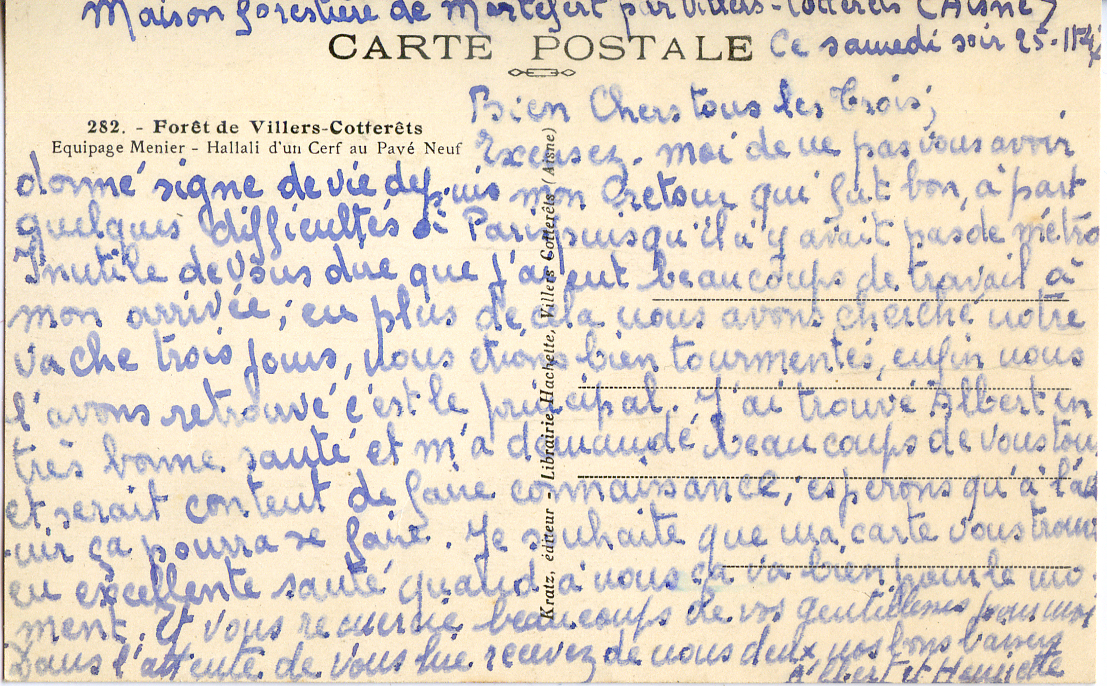 Maison forestière de Montefert par Villers-Cotterets (Aisne)
CARTE POSTALE
Ce samedi soir 25-11-
Bien Chers tous les trois,
282. - Forêt de Villers-Cotterêts
Equipage Menier - Hallali d'un Cerf au Pavé Neuf
Excusez-moi de ne pas vous avoir
donné signe de vie depuis mon retour qui fut bon, à part
quelques difficultés à Paris puisqu'il n'y avait pas de métro
Inutile de vous dire que j'ai eut beaucoups de travail à
mon arrivée; en plus de cela nous avons cherché notre
vache trois jours, nous etions bien tourmentés, enfin nous
l'avons retrouvé c'est le principal. J'ai trouvé Albert en
très bonne santé et m'a demandé beaucoups de vous tous
et serait content de faire connaissance, esperons qu'à l'ave
nir ça pourra se faire. Je souhaite que ma carte vous trouve
en excellente santé quand à nous ça va bien pour le mo-
ment. Et vous remercie beaucoups de vos gentillesses pour moi
Dans l'attente de vous lire recevez de nous deux nos bons baisers
Albert et Henriette
Kratz, éditeur - Librairie Hachette, Villers Cotterêts (Aisne)